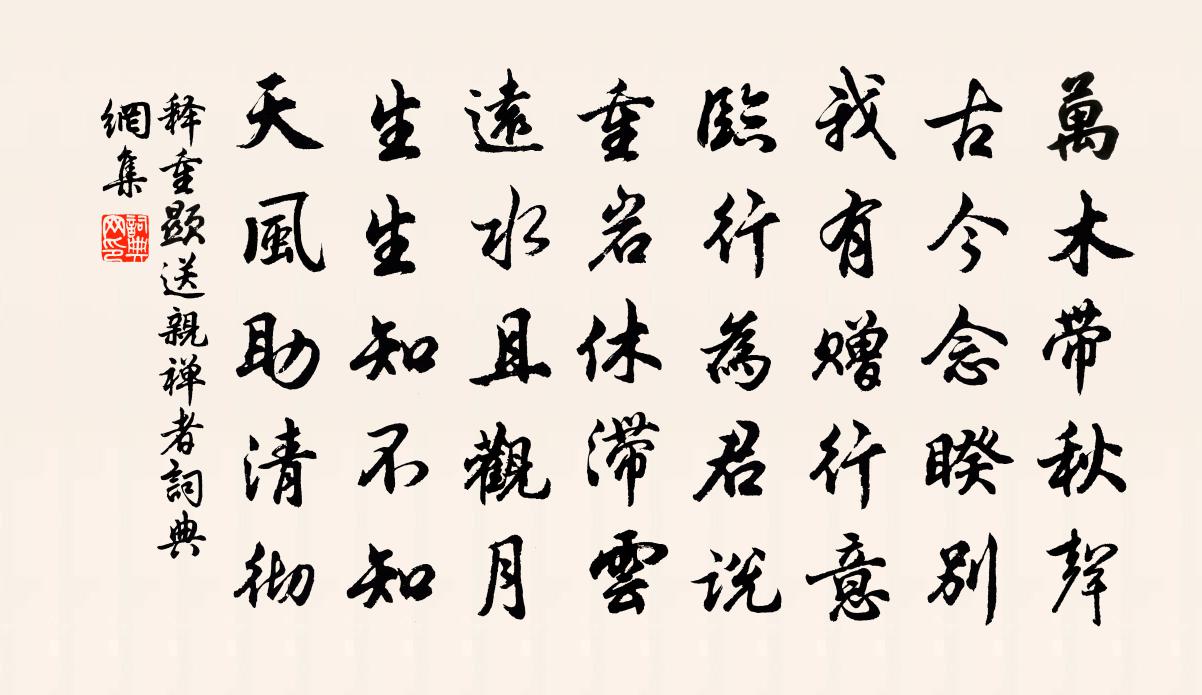 萬木帶秋聲
古今念睽別
我有贈行意
臨行為君説
重岩休滯雲
遠水且觀月
生生知不知
天風助清彻
释重顯送親禅者詞典
網集
詞典
网印